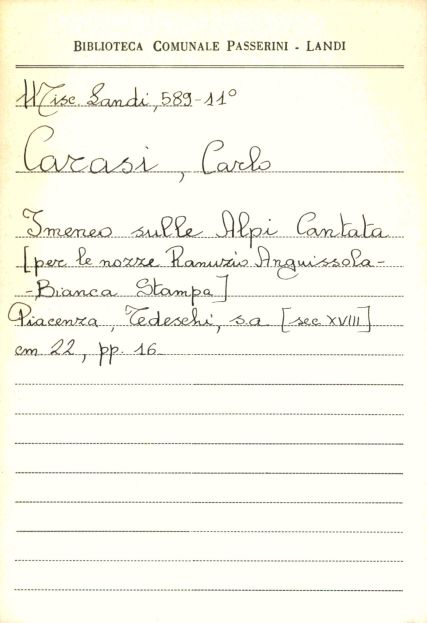 BIBLIOTECA COMUNALE PASSERINI - LANDI
Misc. Landi, 589-11°
Carasi, Carlo
Imeneo sulle Alpi Cantata
[per le nozze Ranuzio Anguissola-
-Bianca Stampa]
Piacenza, Tedeschi, s.a. [sec XVIII]
cm 22, pp. 16